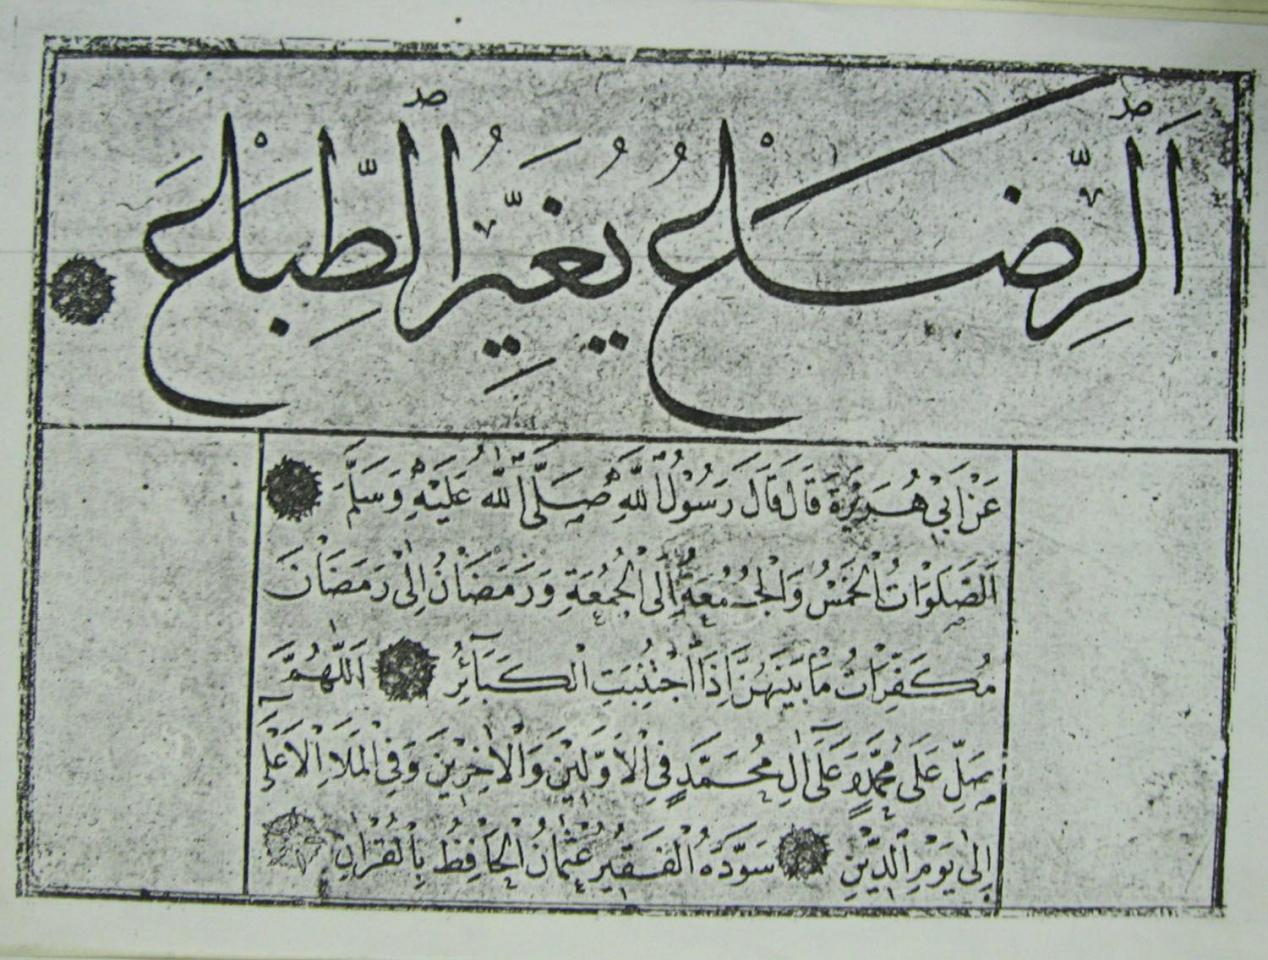 اَلرِّضَاعُ يُغَيِّرُ الطِّبَاعَ
عَنْ اَبِي هُرَيْرَةَ قَالَ قَالَ رَسُوْلُ اللّٰهِ صَلَّى اللّٰهُ عَلَيْهِ وَسَلَّمَ
اَلصَّلَوَاتُ الْخَمْسُ وَالْجُمُعَةُ اِلَى الْجُمُعَةِ وَرَمَضَانُ اِلٰى رَمَضَانَ
مُكَفِّرَاتُ مَا بَيْنَهُنَّ اِذَا اجْتُنِبَتِ الْكَبَآئِرُ اَللّٰهُمَّ
صَلِّ عَلَى مُحَمَّدٍ وَعَلَى اٰلِ مُحَمَّدٍ فِي الْاَوَّلِيْنَ وَالْاٰخِرِيْنَ وَفِي الْمَلَاِ الْاَعْلٰى
اِلٰى يَوْمِ الدِّيْنِ سَوَّدَهُ الْفَقِيْرُ عُثْمَانُ الْحَافِظُ بِالْقُرْاٰنِ